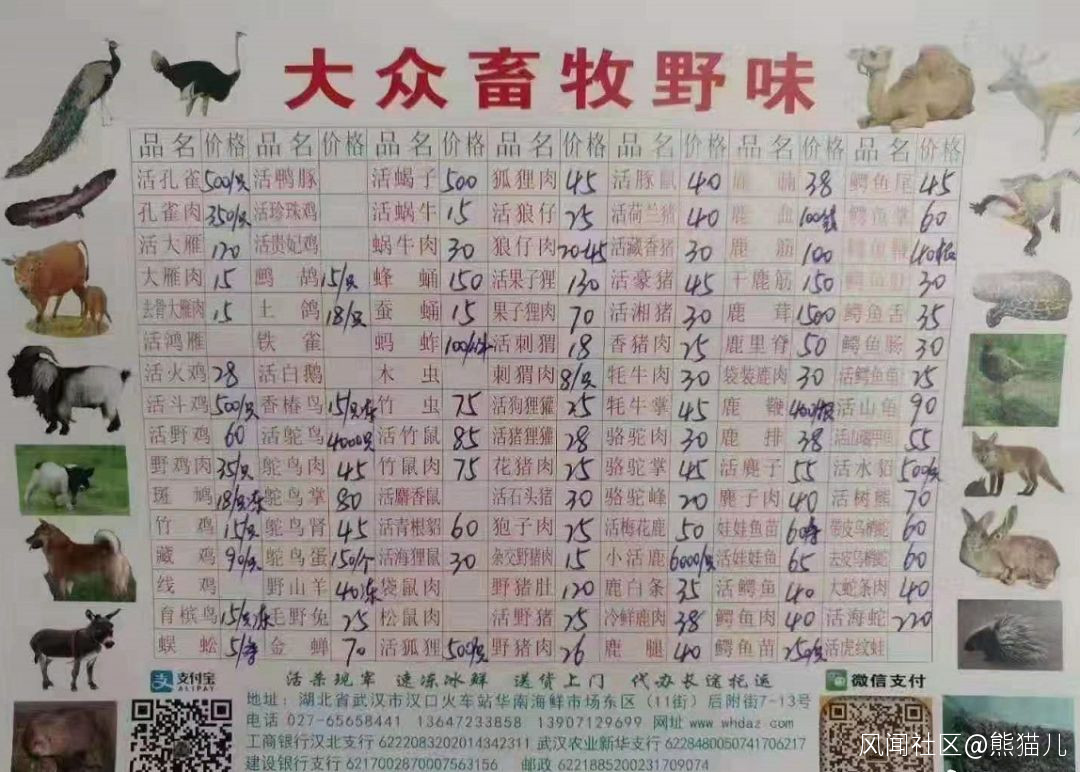 大众畜牧野味
品名 价格 品名 价格 品名 价格 品名 价格 品名 价格 品名 价格 品名 价格
活孔雀 500/只 活鸭豚 活蝎子 500 狐狸肉 45 活豚鼠 40 鹿 38 鳄鱼尾 45
孔雀肉 350/只 活珍珠鸡 活蜗牛 15 活狼仔 25 活荷兰猪 40 鹿血 鳄鱼掌 60
活大雁 120 活贵妃鸡 蜗牛肉 30 狼仔肉 20-45 活藏香猪 30 鹿筋 100 鳄鱼鞭
大雁肉 15 鹧鸪 15/只 蜂蛹 150 活果子狸 130 活豪猪 45 干鹿筋 150 鳄鱼肚 30
去骨大雁肉 15 土鸽 18/只 蚕蛹 15 果子狸肉 70 活湘猪 30 鹿茸 1500 鳄鱼舌 35
活鸿雁 铁雀 蚂蚱 活刺猬 18 香猪肉 25 鹿里脊 50 鳄鱼肠 30
活火鸡 28 活白鹅 木虫 刺猬肉 8/只 牦牛肉 30 袋装鹿肉 30 活鳄鱼龟 25
活斗鸡 500/只 香椿鸟 15/只冻 竹虫 75 活狗狸獾 25 牦牛掌 45 鹿鞭 活山龟 90
活野鸡 60 活鸵鸟 4000只 活竹鼠 85 活猪狸獾 28 骆驼肉 30 鹿排 38 55
野鸡肉 35/只 鸵鸟肉 45 竹鼠肉 75 花猪肉 25 骆驼掌 45 活麂子 55 活水貂 500/只
斑鸠 18/只冻 鸵鸟掌 80 活麝香鼠 活石头猪 30 骆驼峰 20 麂子肉 40 活树熊 70
竹鸡 15/只 鸵鸟肾 45 活青根貂 60 狍子肉 25 活梅花鹿 50 娃娃鱼苗 带皮乌梢蛇 60
藏鸡 90/只 鸵鸟蛋 150/个 活海狸鼠 30 杂交野猪肉 15 小活鹿 6000/只 活娃娃鱼 65 去皮乌梢蛇 60
线鸡 野山羊 40冻 袋鼠肉 野猪肚 120 鹿白条 35 活鳄鱼 40 大蛇条肉 40
育槟鸟 15/只冻 毛野兔 25 松鼠肉 活野猪 25 冷鲜鹿肉 38 鳄鱼肉 40 活海蛇 220
蜈蚣 金蝉 70 活狐狸 500/只 野猪肉 26 鹿腿 40 鳄鱼苗 250/只 活虎纹蛙
支付宝 ALIPAY 活杀现宰 速冻冰鲜 送货上门 代办长途托运 微信支付
地址：湖北省武汉市汉口火车站华南海鲜市场东区（11街）后附街7-13号
电话 027-65658441 13647233858 13907129699 网址 www.whdaz.com
工商银行汉北支行 6222083202014342311 武汉农业新华支行 6228480050741706217
建设银行新华支行 6217002870007563156 邮政 6221885200231709074
风闻社区@熊猫儿